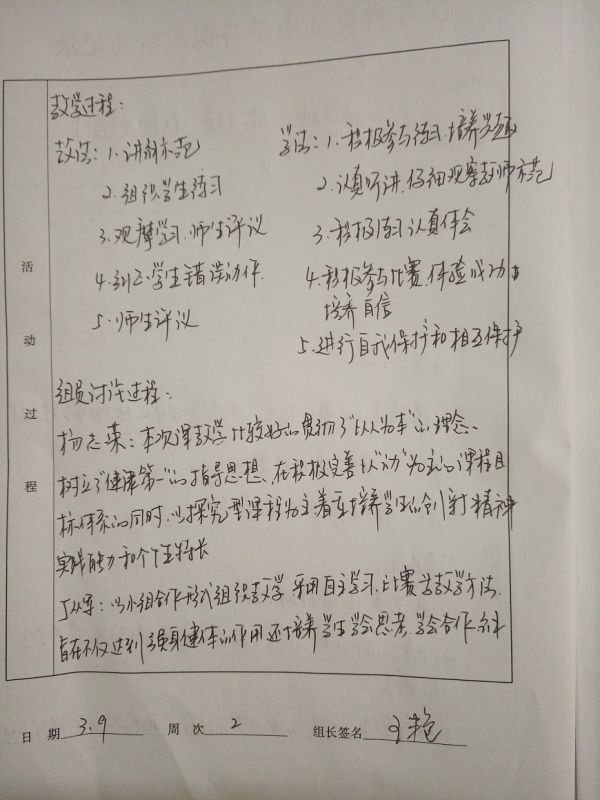 教学过程：
教法：1.讲解示范
学法：1.积极参与练习.培养兴趣
2.组织学生练习
2.认真听讲.仔细观察教师示范
3.观摩学习.师生评议
3.积极练习认真体会
4.纠正学生错误动作.
4.积极参与比赛.体验成功
培养自信
5.师生评议
5.进行自我保护和相互保护
活动过程
组员讨论过程：
杨志荣：本次课教学比较好的贯彻了"以人为本"的理念、
树立了"健康第一"的指导思想、在积极完善以"动"为主的课程目
标体系的同时.以探究型课程为主着重培养学生的创新精神
实践能力和个性特长
丁从军：以小组合作形式组织教学 采用自主学习.比赛等教学方法.
旨在不仅达到强身健体的作用还培养学生学会思考.学会合作.
日期 3.9 周次 2 组长签名